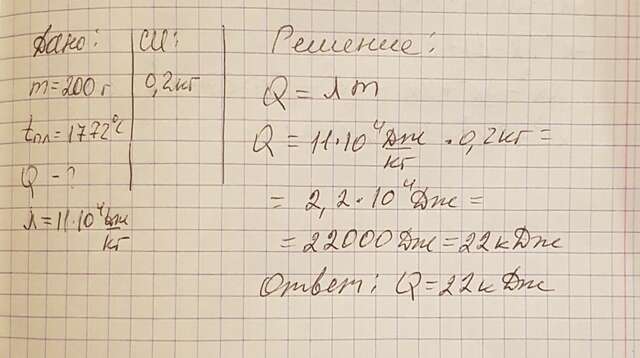 Дано:
m=200г
tпл=1772°C
Q - ?
λ=11·10⁴ Дж/кг
СИ:
0,2кг
Решение:
Q = λm
Q = 11·10⁴ Дж/кг · 0,2кг =
= 2,2·10⁴ Дж =
= 22000 Дж = 22 кДж
Ответ: Q = 22 кДж